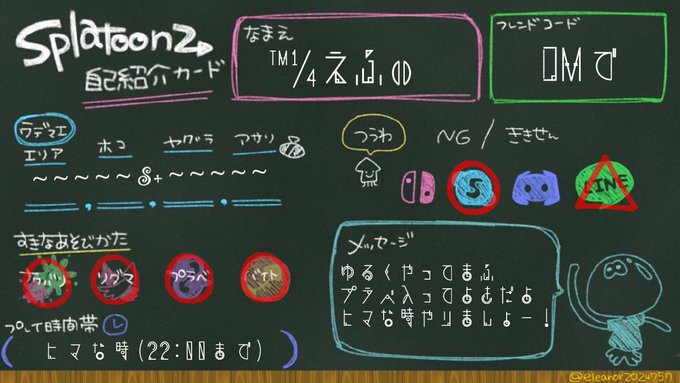 Splatoon2
自己紹介カード
なまえ
TM1/4えふの
フレンドコード
DMで
ウデマエ
エリア ホコ ヤグラ アサリ
～～～～～ S+ ～～～～～
つうわ
NG / ききせん
S
LINE
すきなあそびかた
ナワバリ リグマ プラベ バイト
プレイ時間帯
( ヒマな時(22:00まで) )
メッセージ
ゆるくやってまふ
プラベ入ってよきだよ
ヒマな時やりましょー！
@eleanor2024757